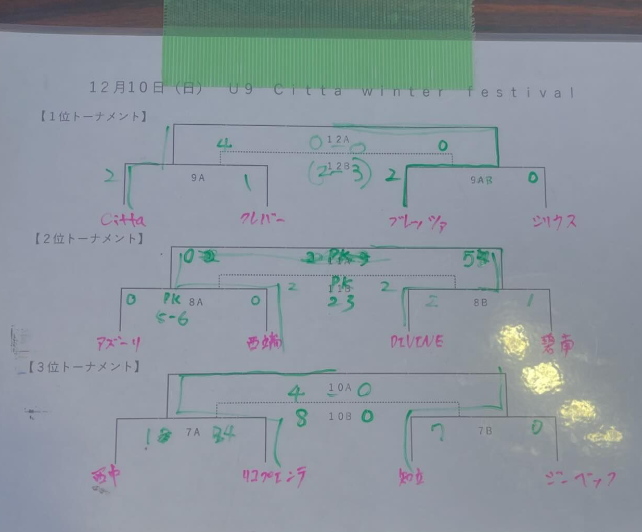 12月10日(日) U9 Citta winter festival
【1位トーナメント】
4 0 12A 0 0
2 9A 1 (2 12B 3) 2 9AB 0
Citta クレバー ブレッツァ シリウス
【2位トーナメント】
0 PK 5
PK
0 PK 8A 0 2 2 3 2 2 8B 1
5-6
アズーリ 西端 DIVINE 碧南
【3位トーナメント】
4 10A 0
8 10B 0
1 7A 4 7 7B 0
西中 知立